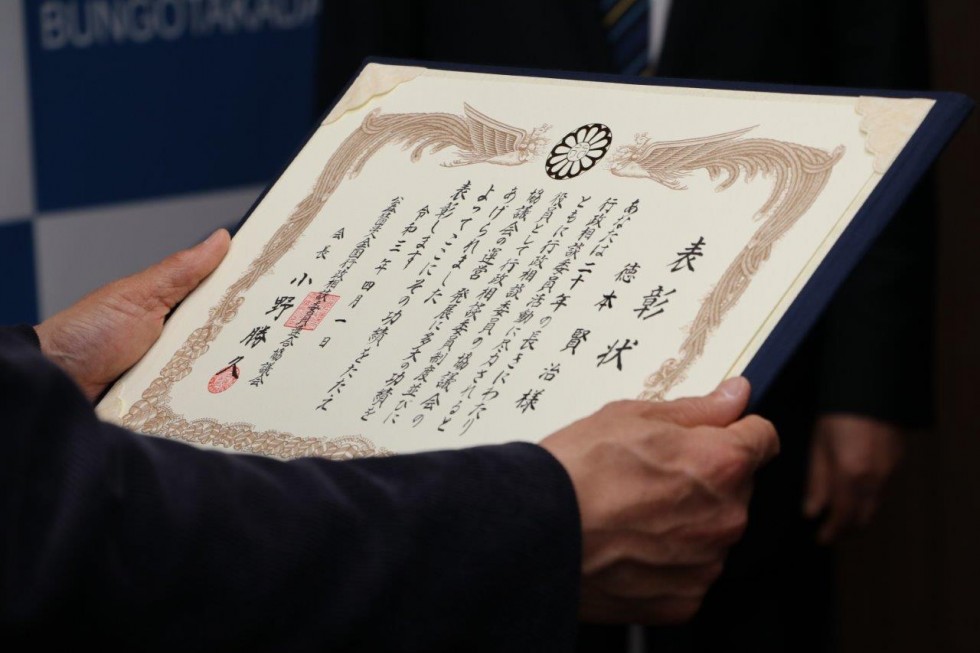 BUNGOTAKADA
表彰状
徳本賢治様
あなたは二十年の長きにわたり
行政相談委員活動に尽力されると
ともに行政相談委員協議会の
役員として行政相談委員制度並びに
協議会の運営発展に多大の功績を
あげられました その功績をたたえ
よってここに
表彰します
令和三年四月一日
公益社団法人全国行政相談委員連合協議会
会長 小野勝久